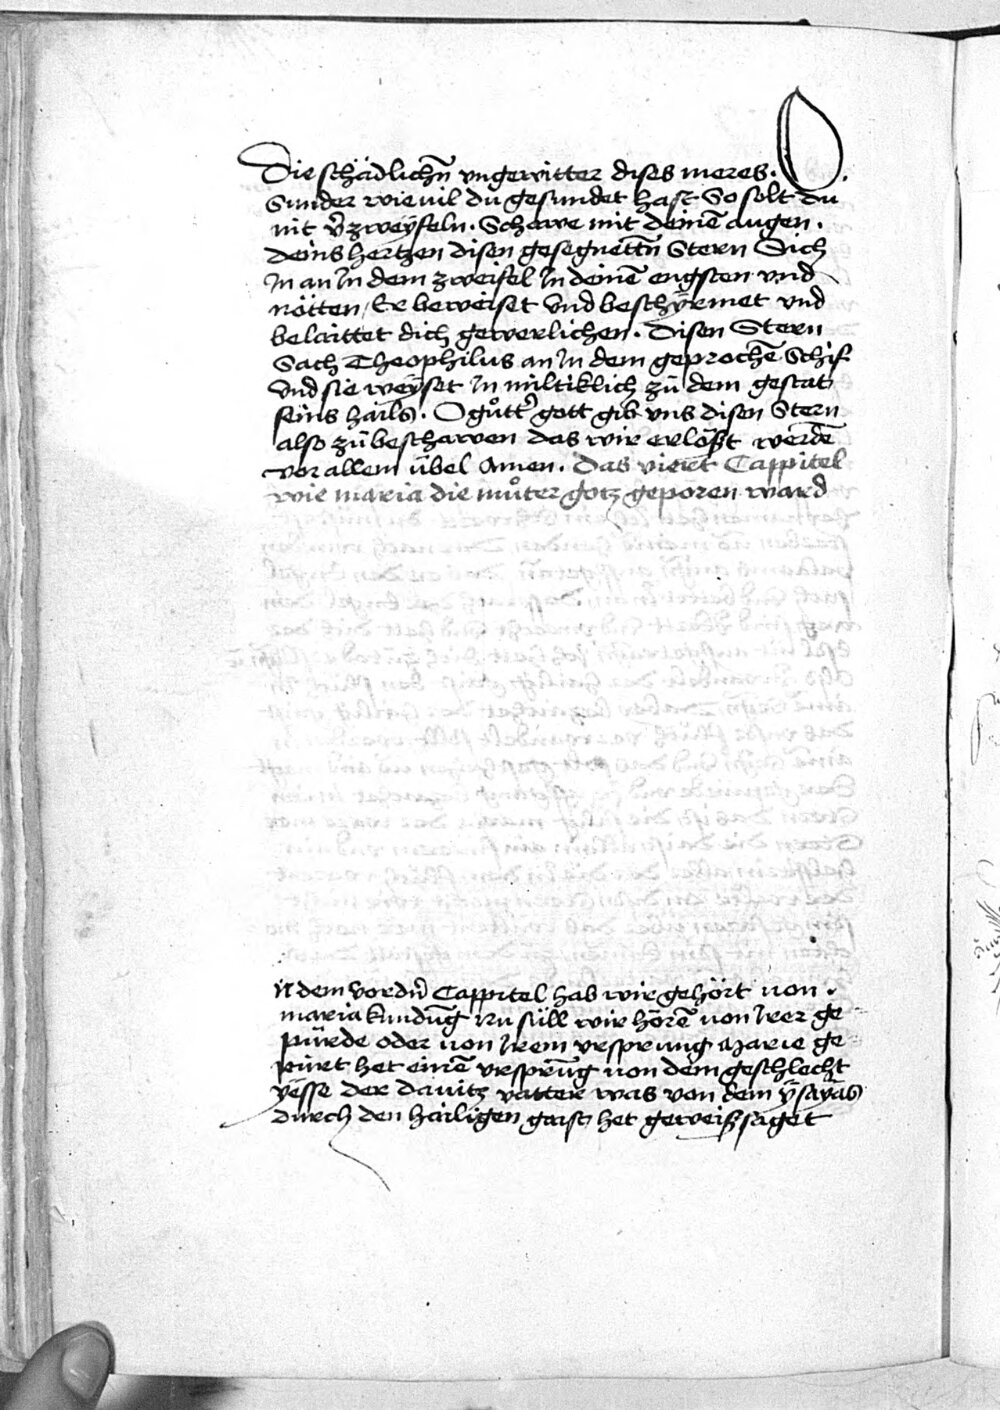 Die schädlichn̄ vngewitter dises meres. O.
Sunder wieuil du gesundet hast So solt du
nit v̄zweÿfeln. Schawe mit deinē augen.
deins hertzen disen gesegnettn̄ Stern Sich
In an In dem zweifel In deinē engsten vnd
nötten / Er beweiset Vnd beschÿrmet vnd
belaittet dich gewerlichen. Disen Stern
Sach Theophilus an In dem geprochē Schif
Vnd sie weÿset In miltiklich zů dem gestat
seins hails. O gůtt̄ gott gib vns disen Stern
also zů beschawen das wir erlößt werdē
vor allem übel Amen. Das viert Cappitel
wie maria die můter gotz geporen ward
In dem Vordn̄ Cappitel hab wir gehört von.
maria kundūg Nu süll wir hörē von Irer ge=
pürde oder von Irem vrsprung Marie ge=
purt het einē vrsprūg von dem geschlecht
yësse der dauitz vatter was von dem ÿsaÿas
durch den hailigen gaist het geweissaget